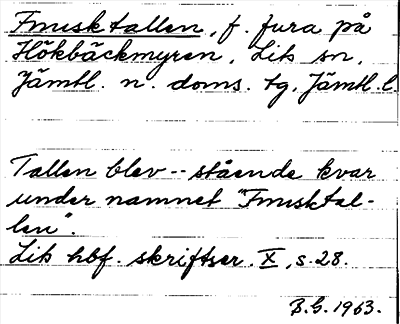 Fnusktallen, f. fura på
Hökbäckmyren, Lits sn,
Jämtl. n. doms. tg, Jämtl. l.
Tallen blev -- stående kvar
under namnet "Fnusktal-
len".
Lits hbf. skriftser. X, s. 28.
B.G. 1963.